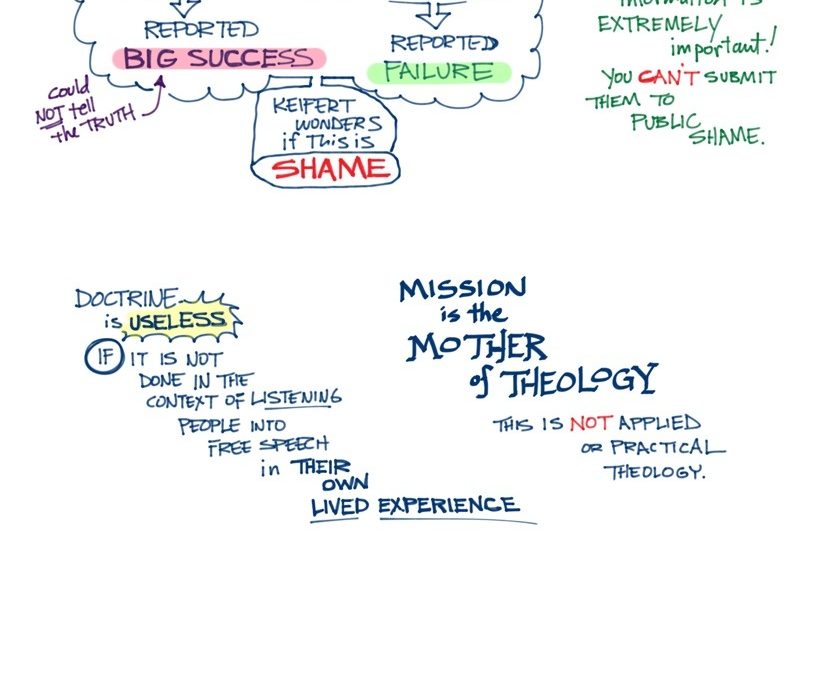 REPORTED
BIG SUCCESS
could
NOT tell
the TRUTH
REPORTED
FAILURE
KEIFERT
WONDERS
if This is
SHAME
information is
EXTREMELY
important!
YOU CAN'T SUBMIT
THEM TO
PUBLIC
SHAME.
DOCTRINE
is USELESS
IF IT IS NOT
DONE IN THE
CONTEXT OF LISTENING
PEOPLE INTO
FREE SPEECH
in THEIR
OWN
LIVED EXPERIENCE
MISSION
is the
MOTHER
of THEOLOGY
THIS IS NOT APPLIED
OR PRACTICAL
THEOLOGY.